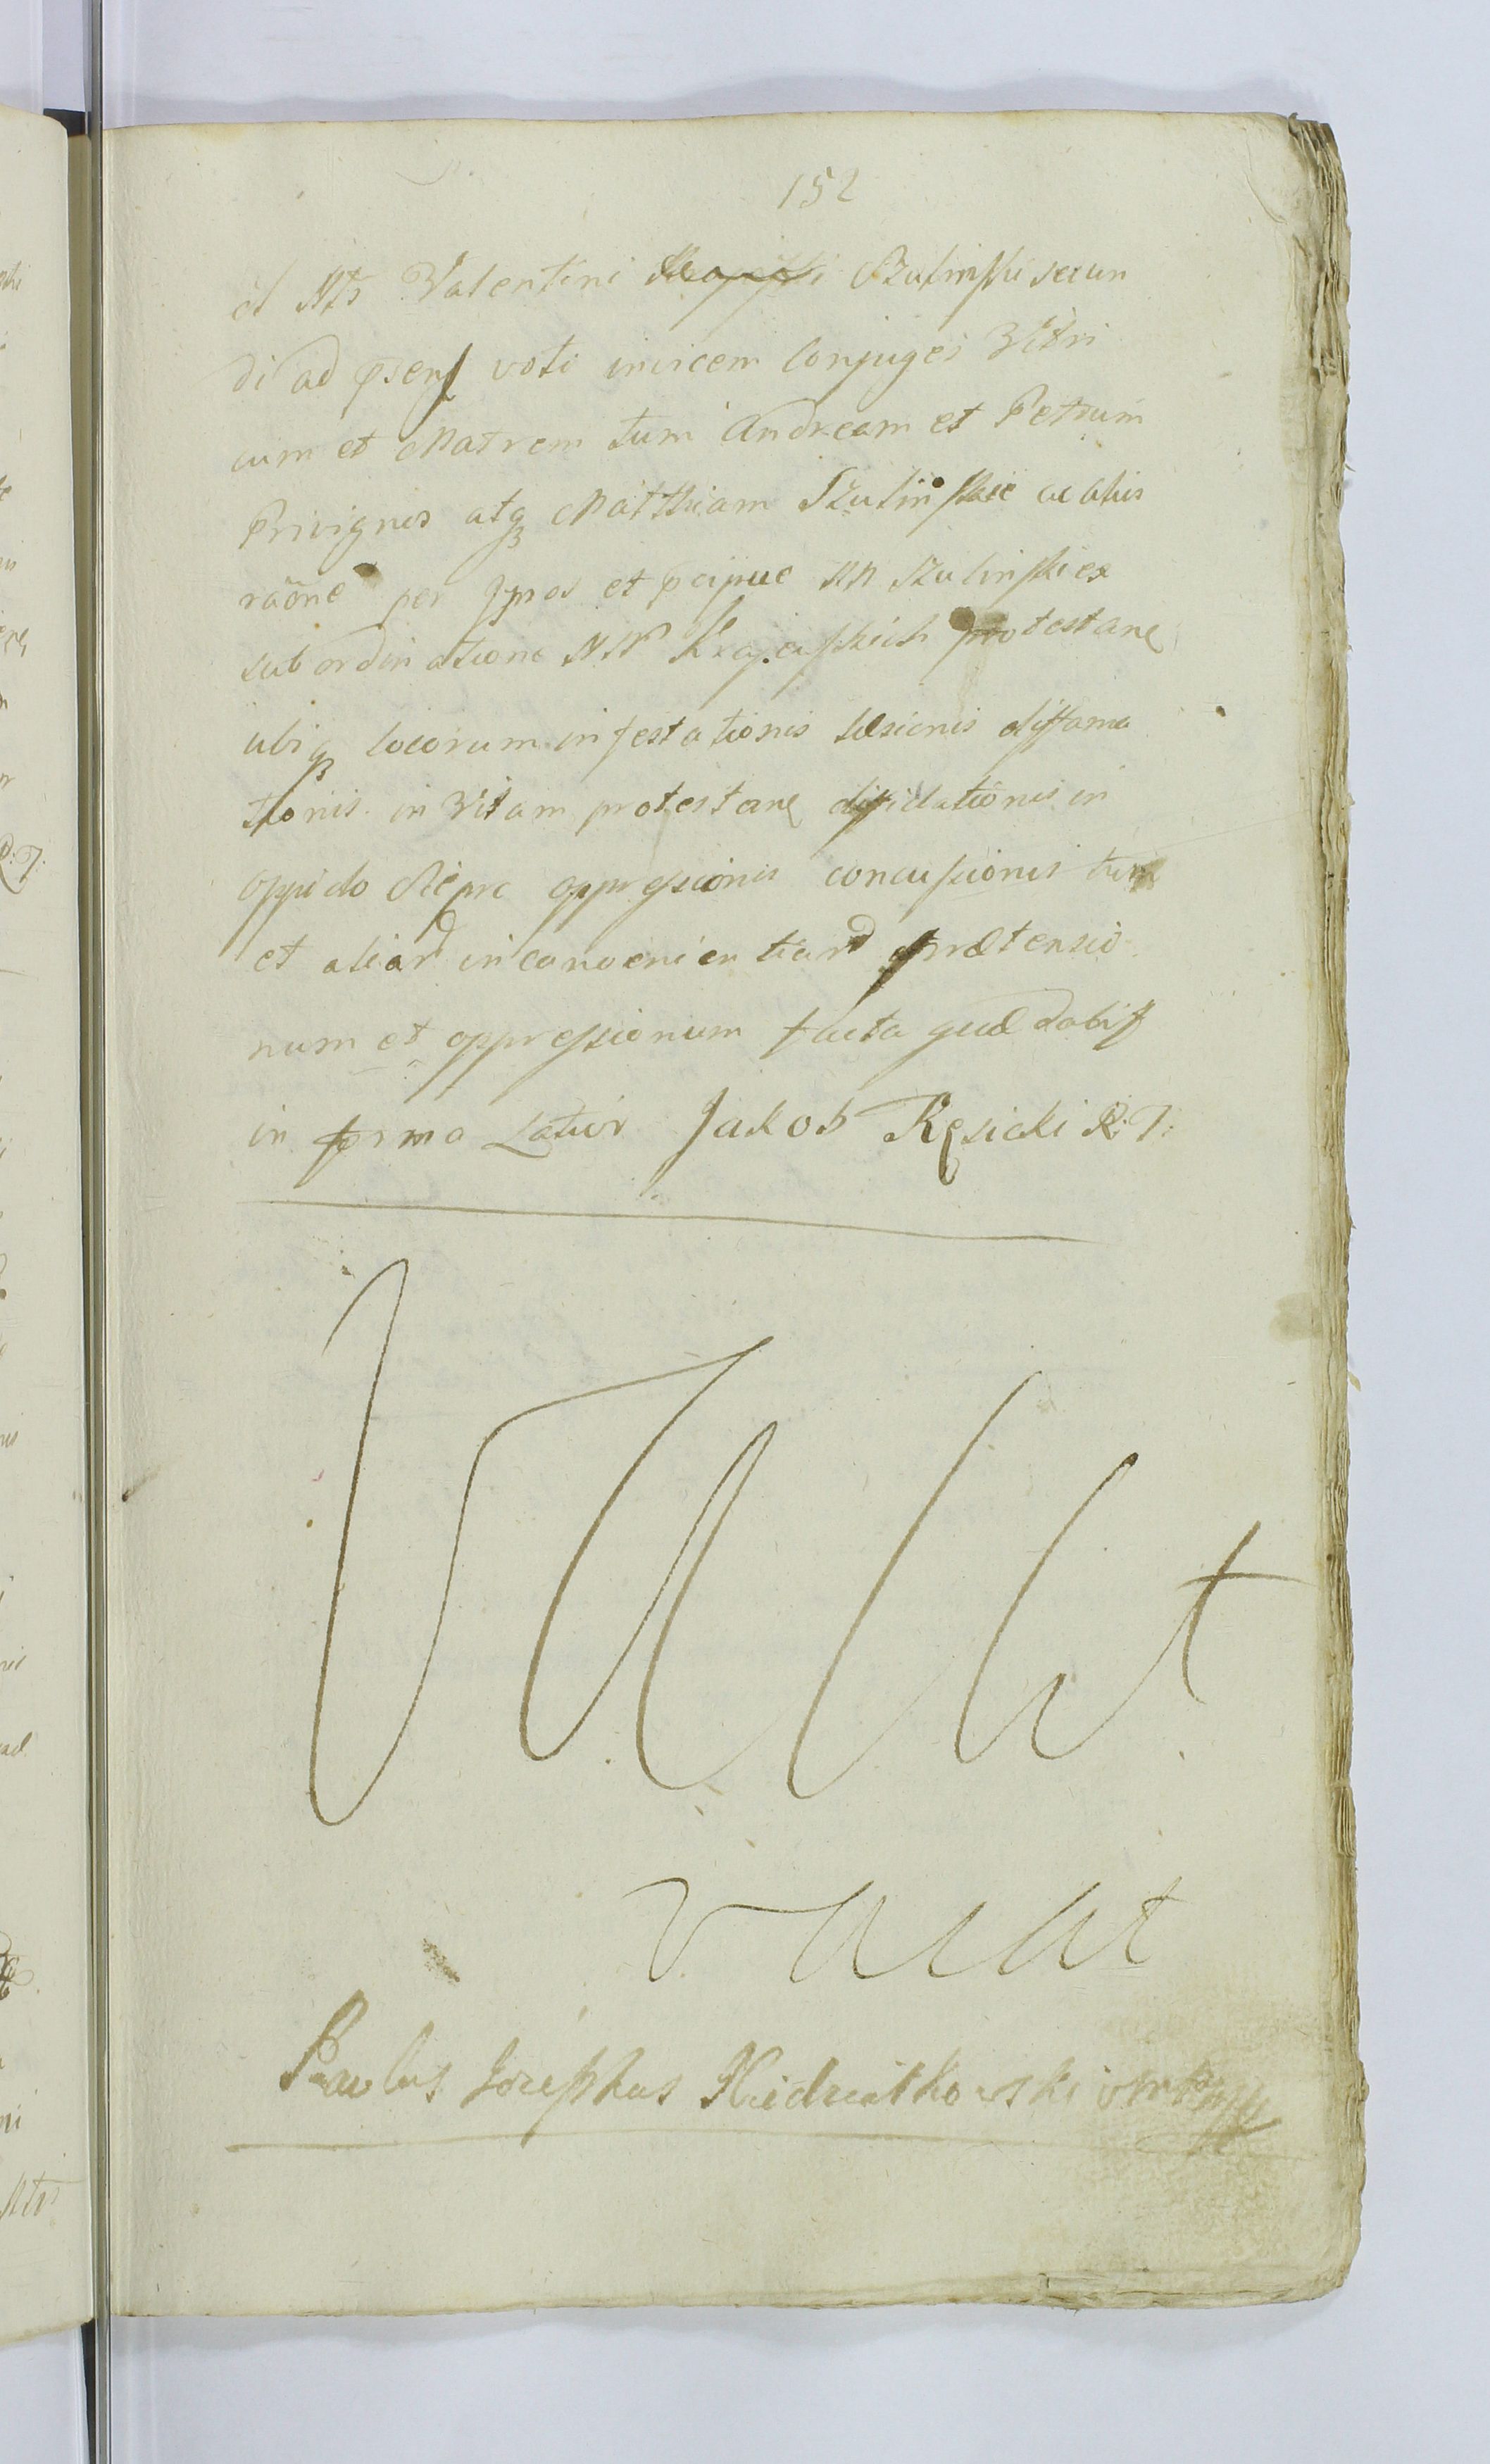 152
et Nts Valentini Szulinski secun
di ad psens voti invicem Conjuges Vitri
cum et Matrem tum Andream et Petrum
Privignos atq Matthiam Szulinskie ac alios
raone per Ipsos et pcipue NN Szulinskiex
subordinatione NN Krajewskich protestane
ubiq locorum infestationis læsionis diffama
tionis in Vitam protestane diffidationis in
oppido Sierpc oppressionis concussionis tum
et aliar inconvenientiar prætensio
num et oppressionum facta quæ dabit
in forma Latior Jakob Kęsicki R: T:
Vacat
vacat
Paulus Josephus Niedziałkowski